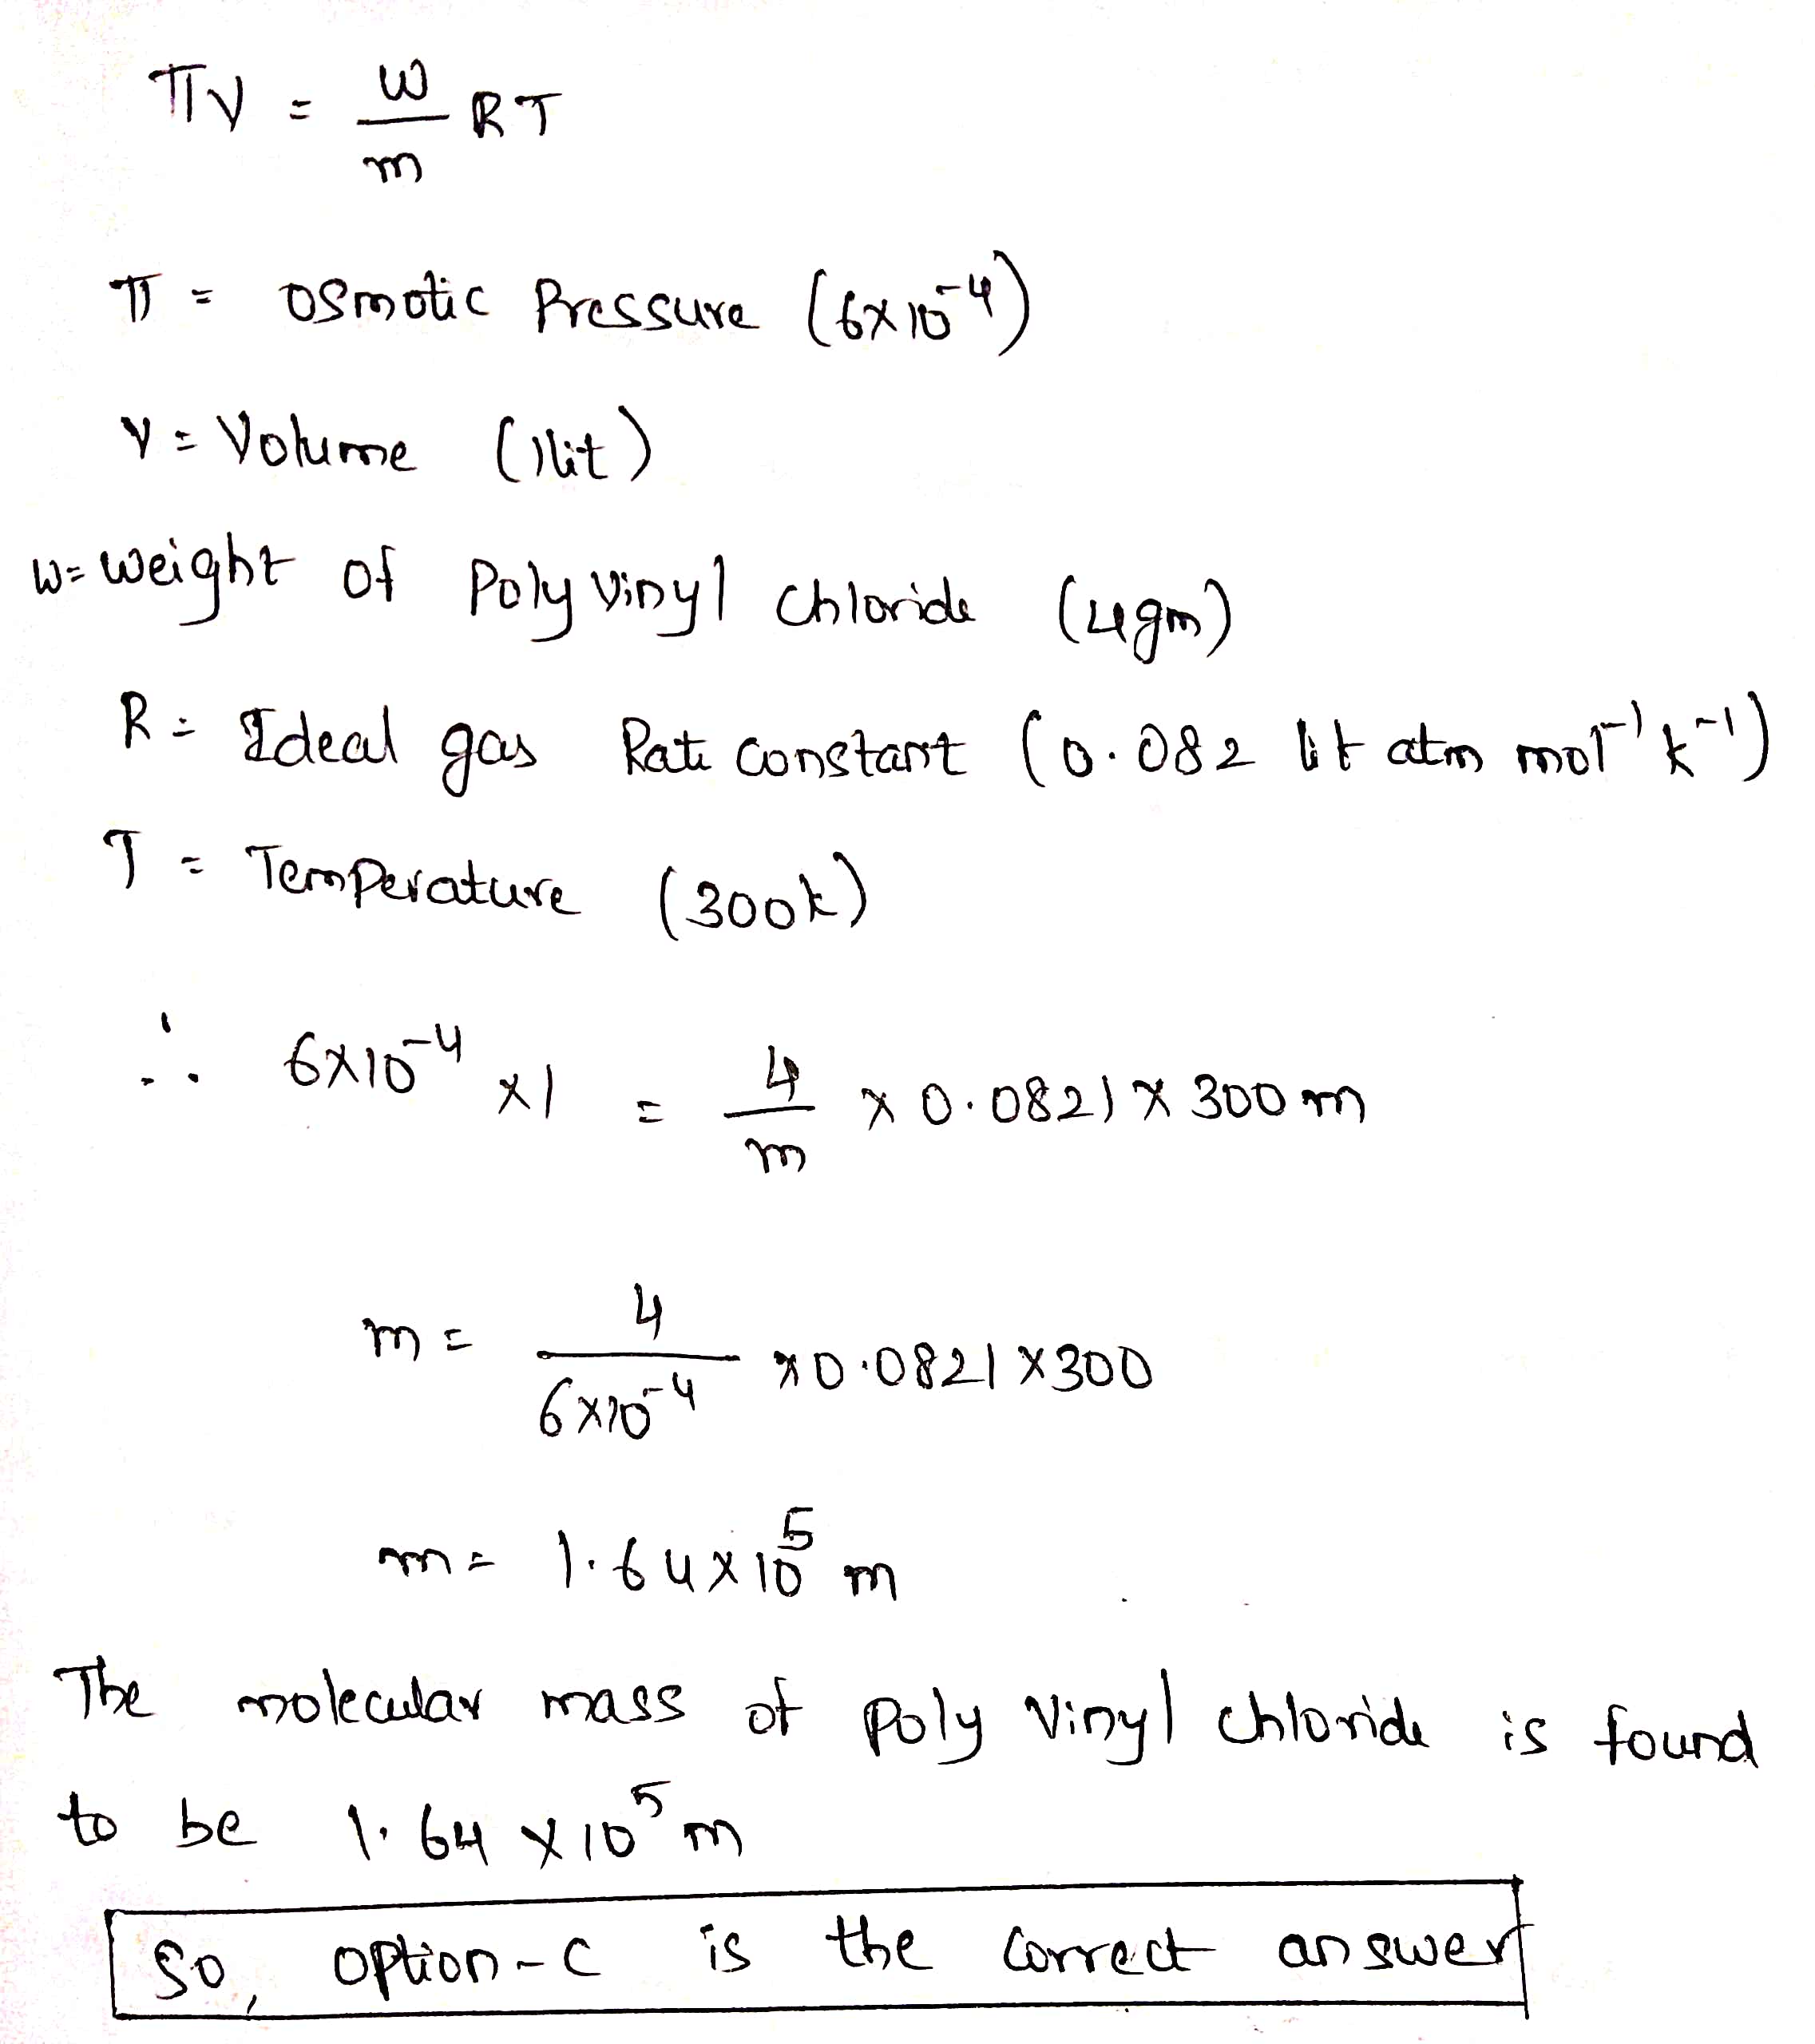 πV = w/m RT
π = osmotic Pressure (6x10^-4)
V = Volume (1lit)
W= weight of Poly vinyl chloride (4gm)
R = Ideal gas Rate constant (0.082 lit atm mol^-1 k^-1)
T = Temperature (300k)
∴ 6x10^-4 x1 = 4/m x 0.0821 x 300 m
m = 4/6x10^-4 x0.0821 x300
m = 1.64x10^5 m
The molecular mass of poly vinyl chloride is found
to be 1.64 x10^5 m
So, option-c is the correct answer